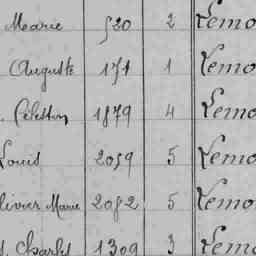 Marie 520 2 Lemo
Auguste 171 1 Lemo
Célestin 1879 4 Lemo
Louis 2059 5 Lemo
Olivier Marie 2082 5 Lemo
Charles 1309 3 Lemo